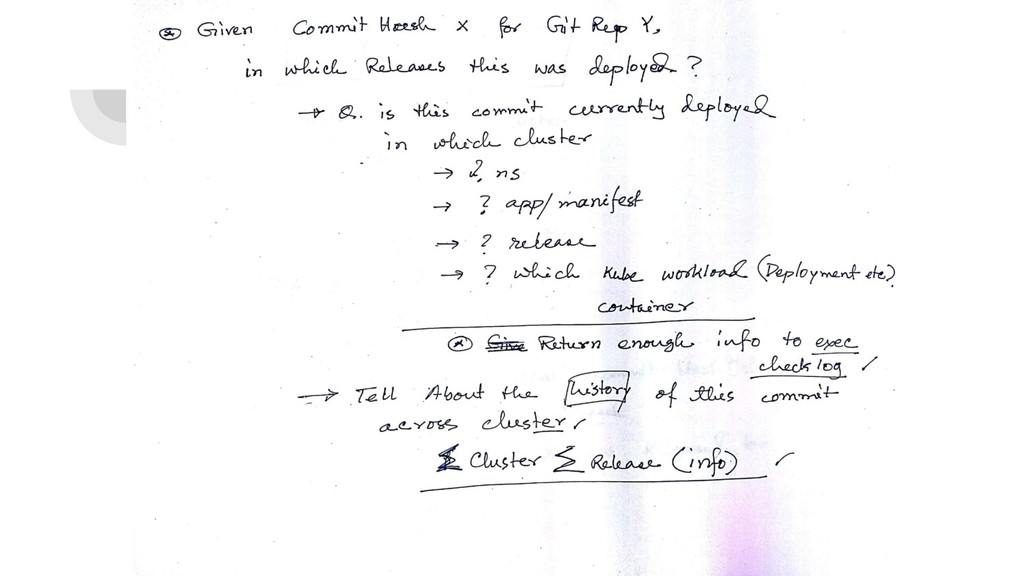 ⊛ Given Commit Hash X for Git Repo Y,
in which Releases this was deployed ?
→ Q. is this commit currently deployed
in which cluster
→ ? ns
→ ? app/manifest
→ ? release
→ ? which Kube workload (Deployment etc)
container
⊛ Give Return enough info to exec
check log ✓
→ Tell About the history of this commit
across cluster ✓
Σ Cluster Σ Release (info) ✓